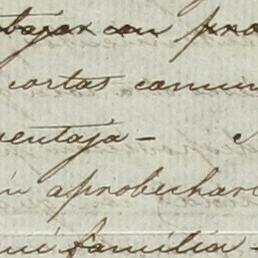 bajar con pro
cortas comun
ventaja -
n aprobechar
mi familia -